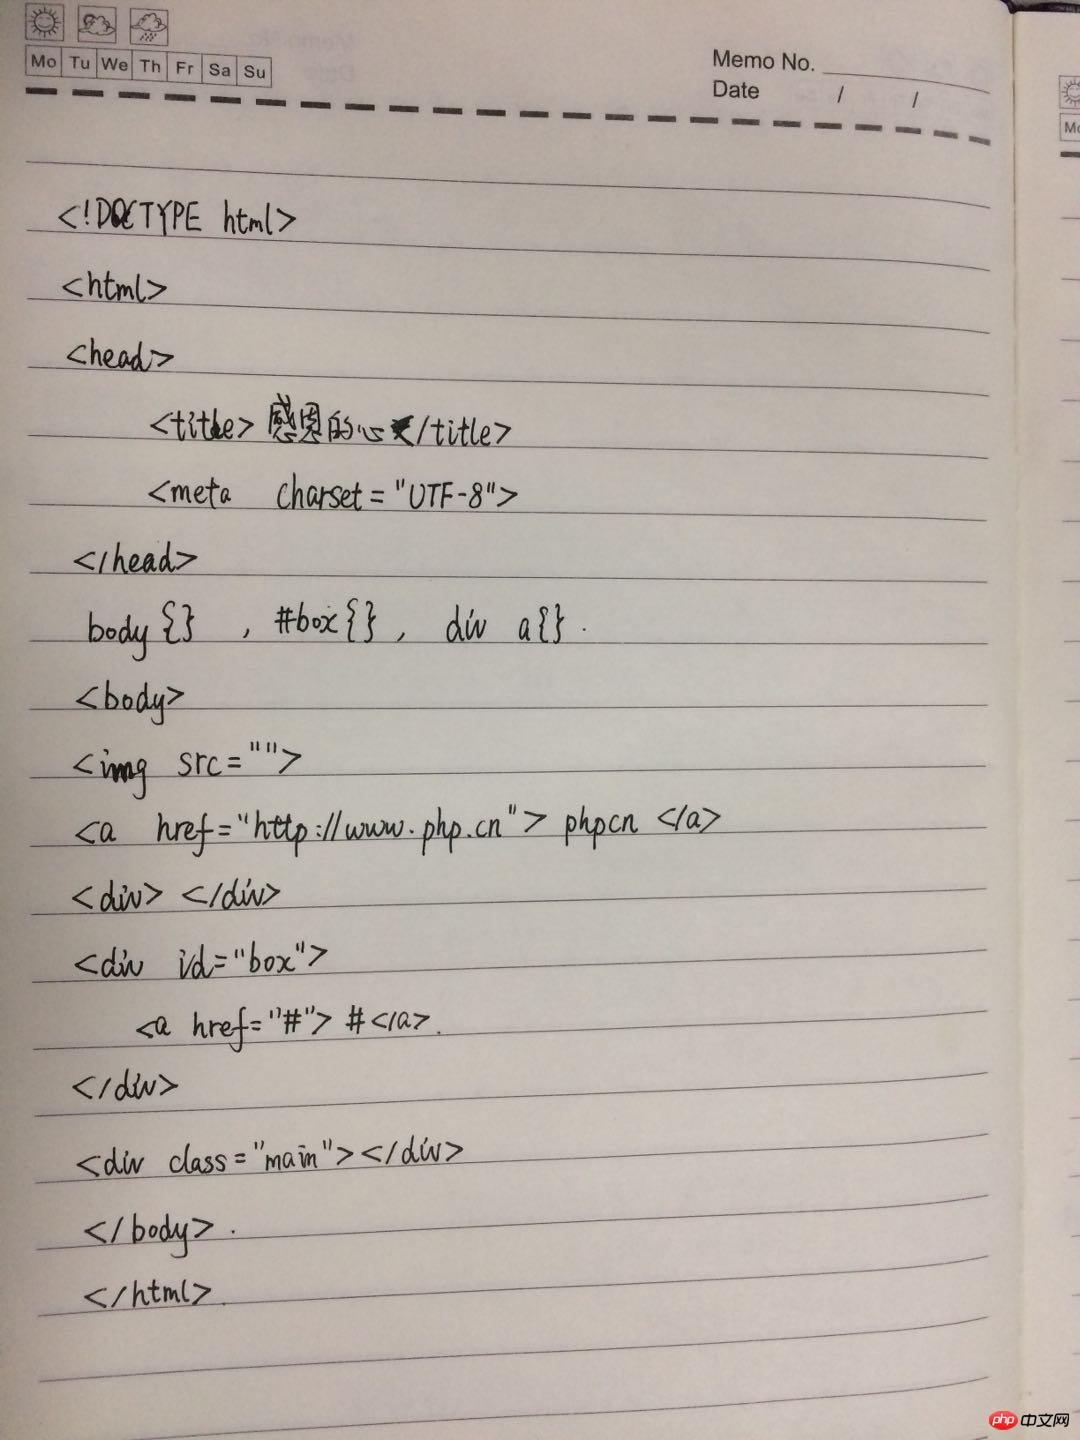 Mo Tu We Th Fr Sa Su
Memo No.
Date / /
Mo
<!DOCTYPE html>
<html>
<head>
<title>感恩的心</title>
<meta charset="UTF-8">
</head>
body{} , #box{}, div a{}.
<body>
<img src="">
<a href="http://www.php.cn"> phpcn </a>
<div> </div>
<div id="box">
<a href="#"> #</a>.
</div>
<div class="main"></div>
</body>.
</html>.
php 中文网